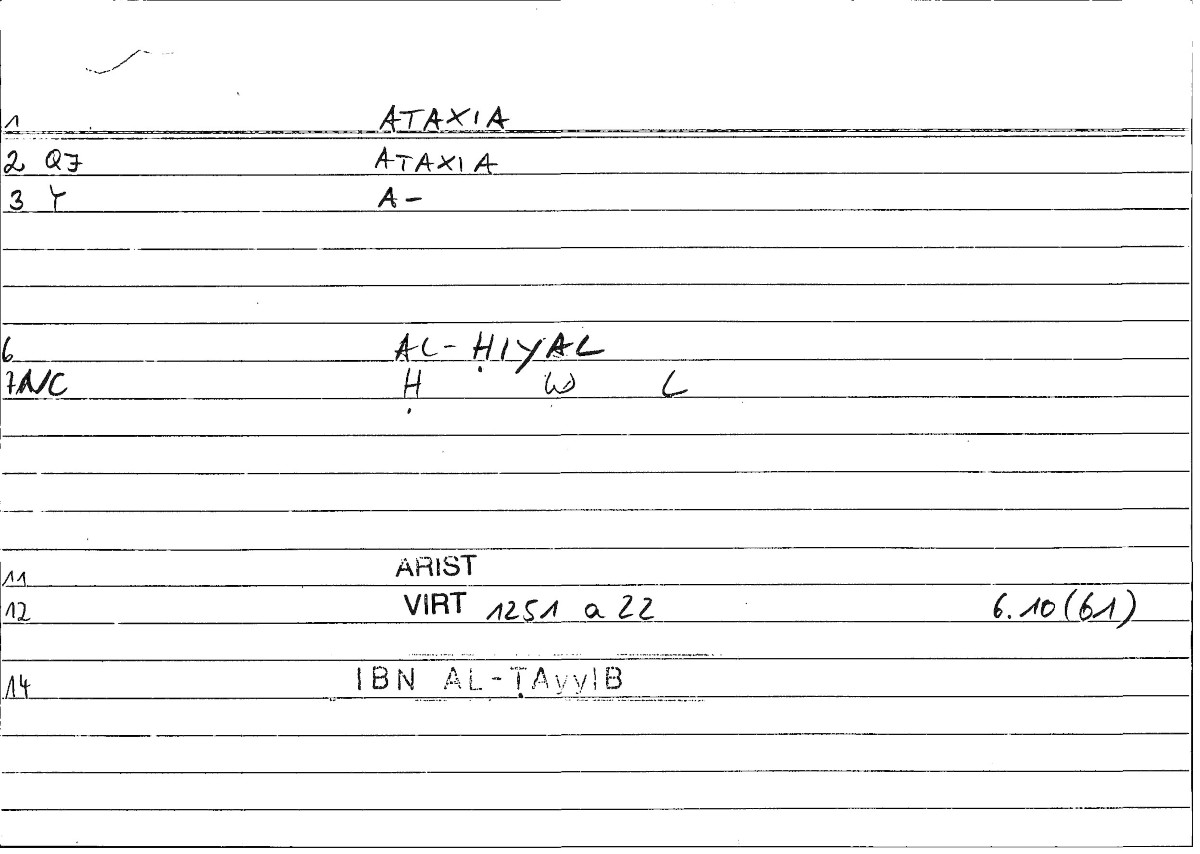 1 ATAXIA
2 Q7 ATAXIA
3 Y A-
6 AL-ḤIYAL
7 N/C Ḥ W L
11 ARIST
12 VIRT 1251 a 22 6.10(61)
14 IBN AL-ṬAyyIB